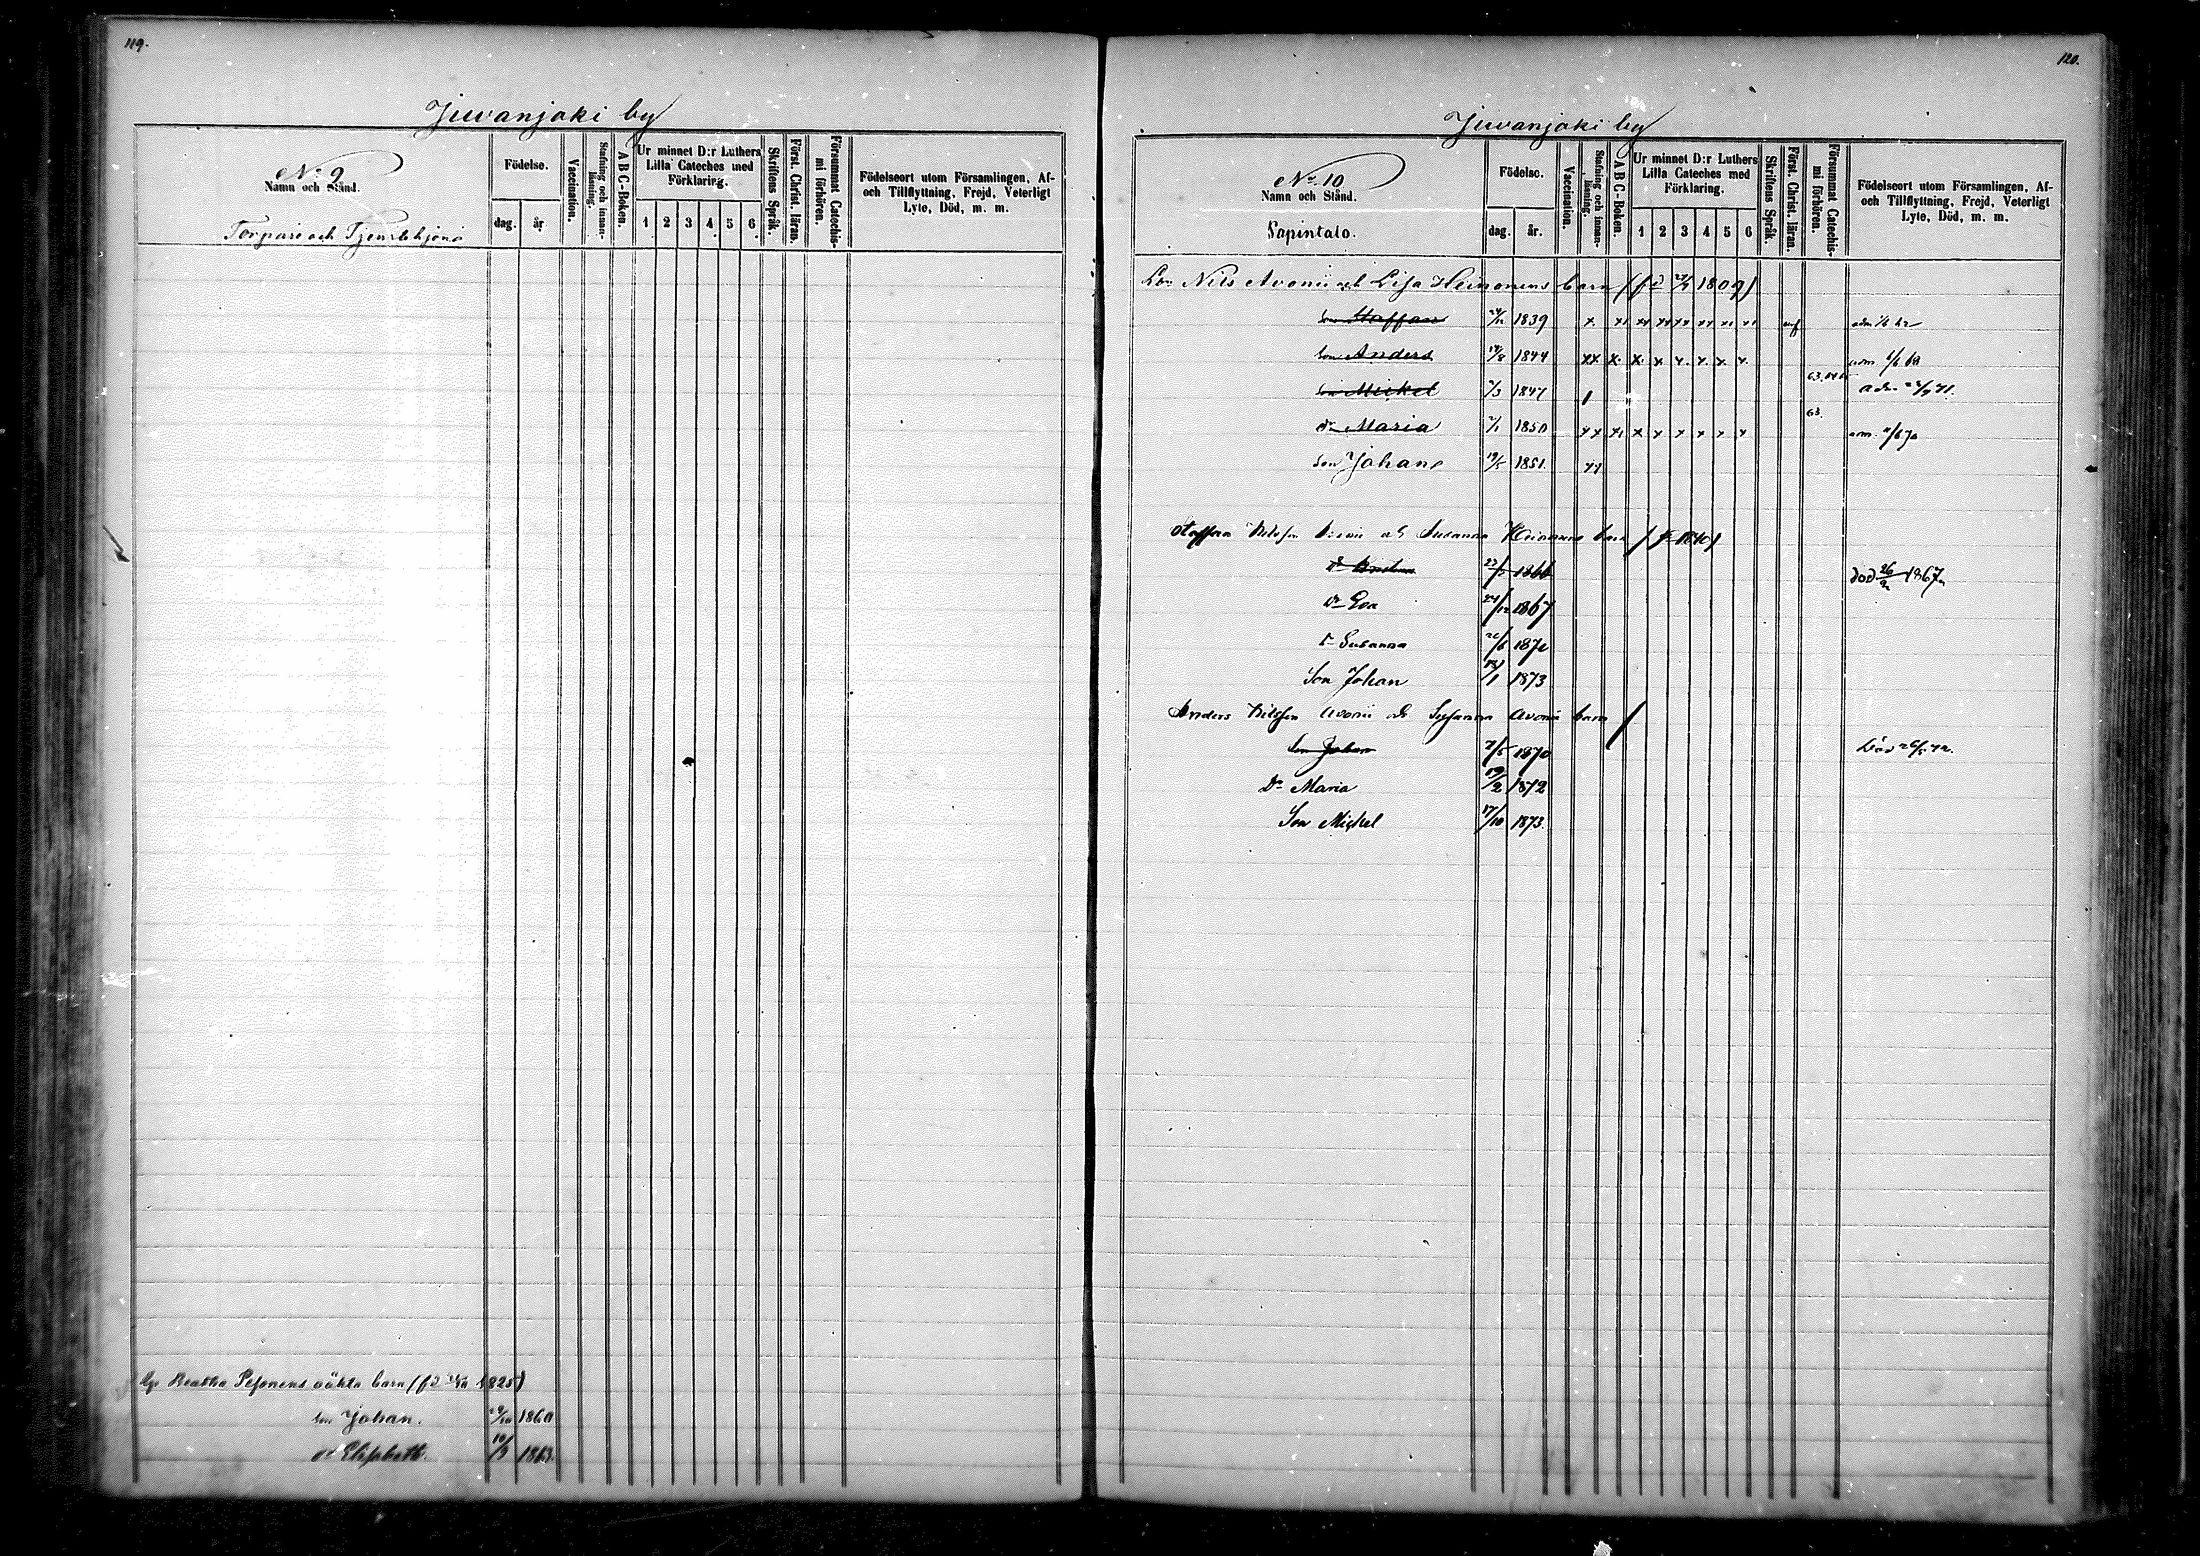 119.
Juvanjoki by
No 9
Namn och Stånd.
Torpare och Tjenstehjon
Födelse.
dag. år
Vaccination.
Stafning och innanläsning.
A B C-Boken.
Ur minnet D:r Luthers Lilla Cateches med Förklaring.
1 2 3 4 5 6
Skriftens Språk.
Först. Christ. läran.
Försummat Catechismi förhören.
Födelseort utom Församlingen, Af- och Tillflyttning, Frejd, Veterligt Lyte, Död, m. m.
Beatha Pesonens oäkta barn (fö 1825)
Son Johan. 1860
dr Elisabeth. 10/9 1863.
120.
Juvanjoki by
No 10
Namn och Stånd.
Papintalo.
Födelse.
dag. år.
Vaccination.
Stafning och innanläsning.
A B C-Boken.
Ur minnet D:r Luthers Lilla Cateches med Förklaring.
1 2 3 4 5 6
Skriftens Språk.
Först. Christ. läran.
Försummat Catechismi förhören.
Födelseort utom Församlingen, Af- och Tillflyttning, Frejd, Veterligt Lyte, Död, m. m.
Nils Avonii och Lisa Heinonens barn (fö 1809)
Son Staffan 1839
Son Anders 1844
Son Mickel 1847
63.
dr Maria 1850
Son Johan 19/5 1851.
Staffan Nilsson Avonii och Susanna Heinonens barn
1866 död 1867.
Dr Eva 24/12 1867
Dr Susanna
Son Johan 1873
Anders Nilsson Avonii och Susanna Avonii barn
Son Johan 1870
Dr Maria 19/2 1872
Son Mickel 17/10 1873.